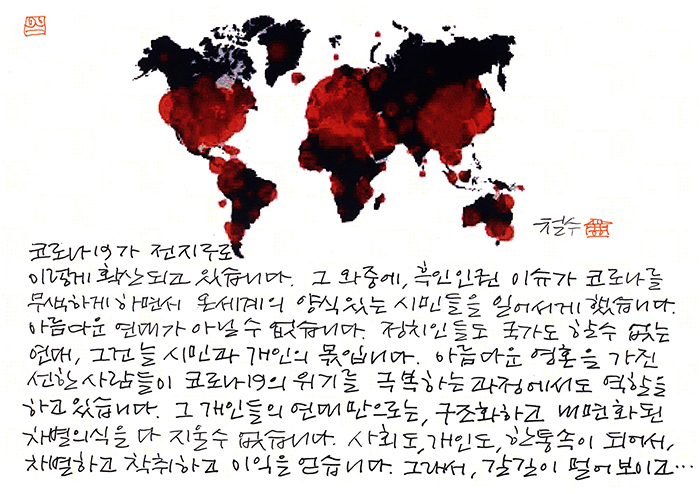 철수
코로나19가 전지구로
이렇게 확산되고 있습니다. 그 와중에, 흑인인권 이슈가 코로나를
무색하게 하면서 온세계의 양식있는 시민들을 일어서게 했습니다.
아름다운 연대가 아닐 수 없습니다. 정치인들도 국가도 할수 없는
연대, 그건 늘 시민과 개인의 몫입니다. 아름다운 영혼을 가진
선한 사람들이 코로나19의 위기를 극복하는 과정에서도 역할을
하고 있습니다. 그 개인들의 연대만으로는, 구조화하고 내면화된
차별의식을 다 지울수 없습니다. 사회도, 개인도, 한통속이 되어서,
차별하고 착취하고 이익을 얻습니다. 그래서, 갈길이 멀어 보이고…